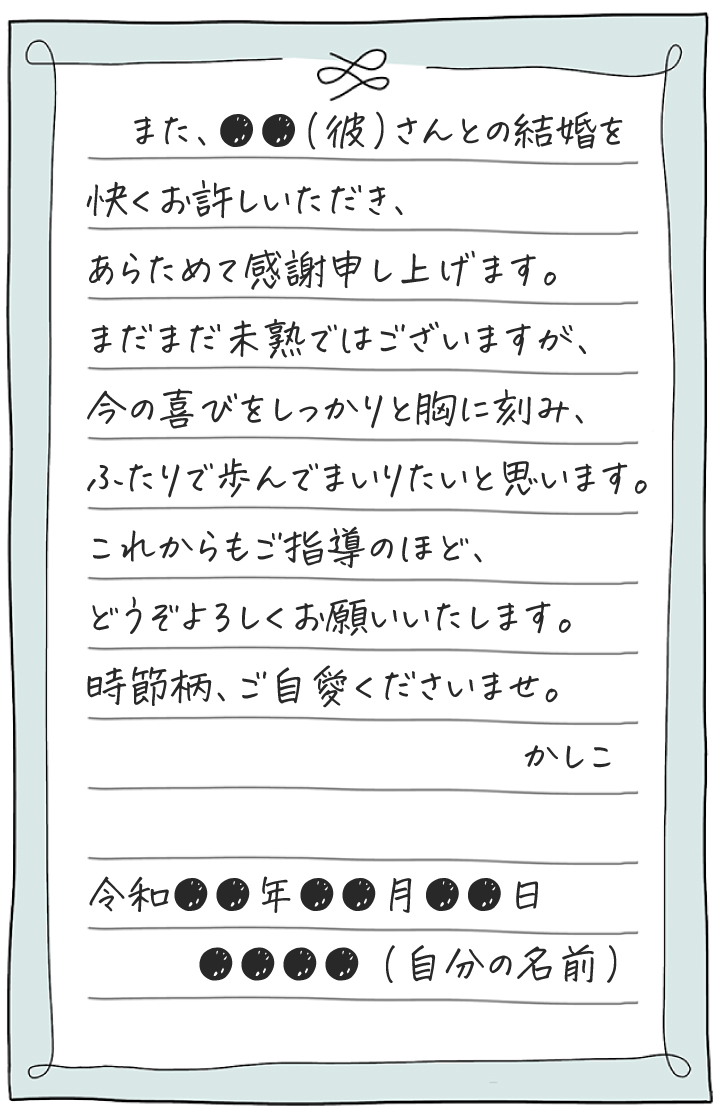 また、●●(彼)さんとの結婚を
快くお許しいただき、
あらためて感謝申し上げます。
まだまだ未熟ではございますが、
今の喜びをしっかりと胸に刻み、
ふたりで歩んでまいりたいと思います。
これからもご指導のほど、
どうぞよろしくお願いいたします。
時節柄、ご自愛くださいませ。
かしこ
令和●●年●●月●●日
●●●●(自分の名前)